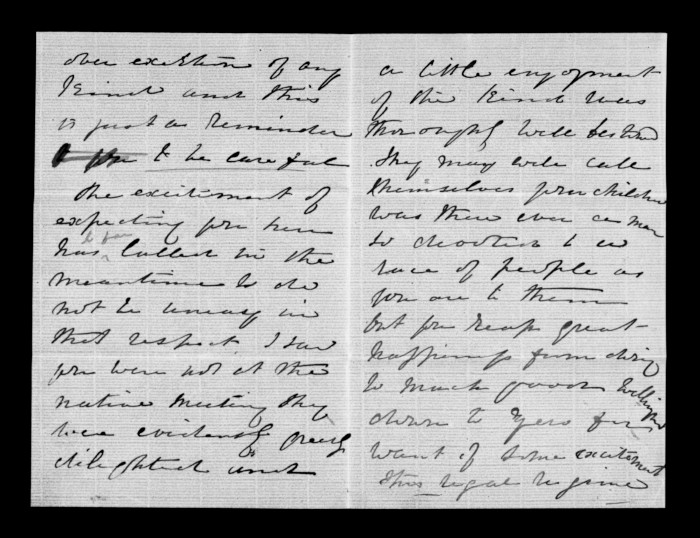 over exertion of any
kind and this
is just a reminder
to be careful
the excitement of
expecting you here
has lulled in the
meantime so do
not be uneasy in
that respect I saw
you were not at the
native meeting they
were evidently greatly
delighted and
a little enjoyment
of the kind was
thoroughly well bestowed
they may well call
themselves your children
was there ever a man
so devoted to a
race of people as
you are to them
but you reap great
happiness from doing
so much good Wellington
down to zero for
want of some excitement
this regal regime